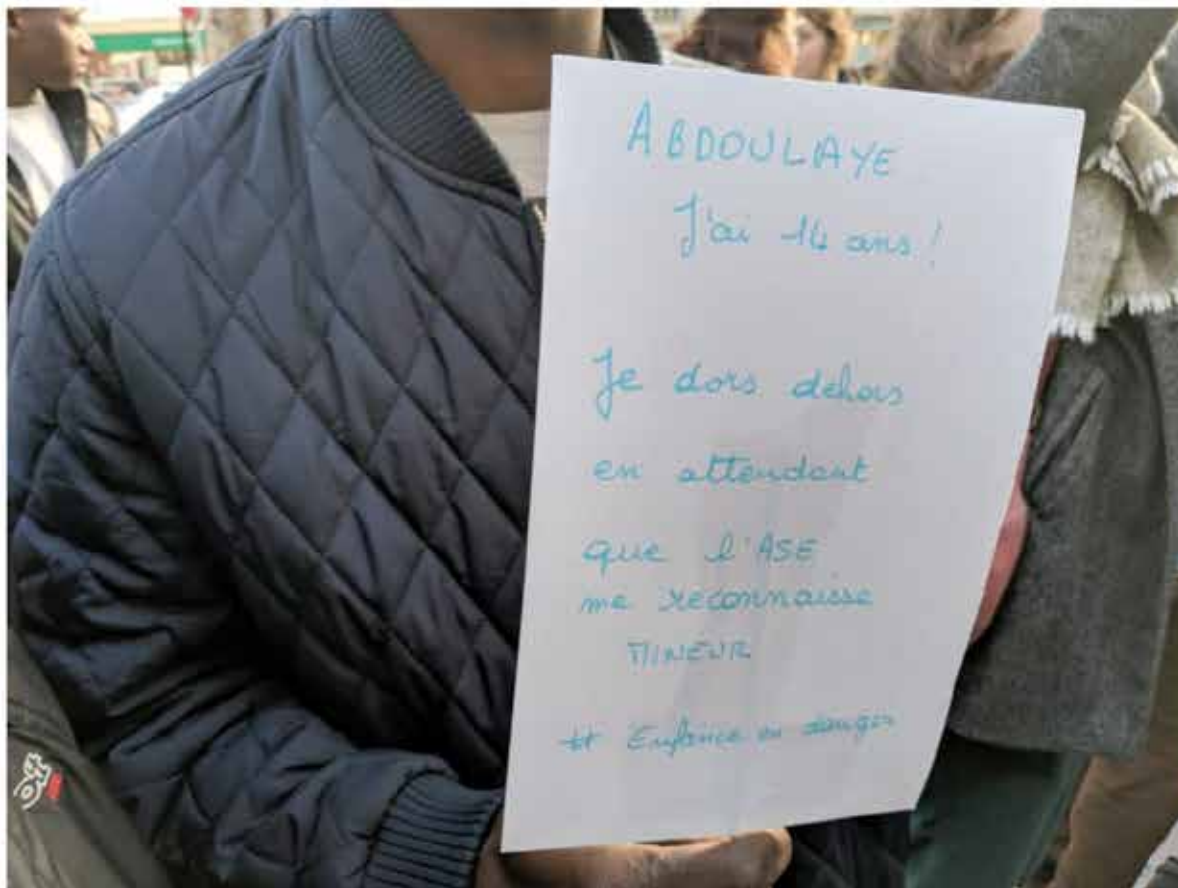 ABDOULAYE
J'ai 14 ans !
Je dors dehors
en attendant
que l'ASE
me reconnaisse
MINEUR
# Enfance en danger